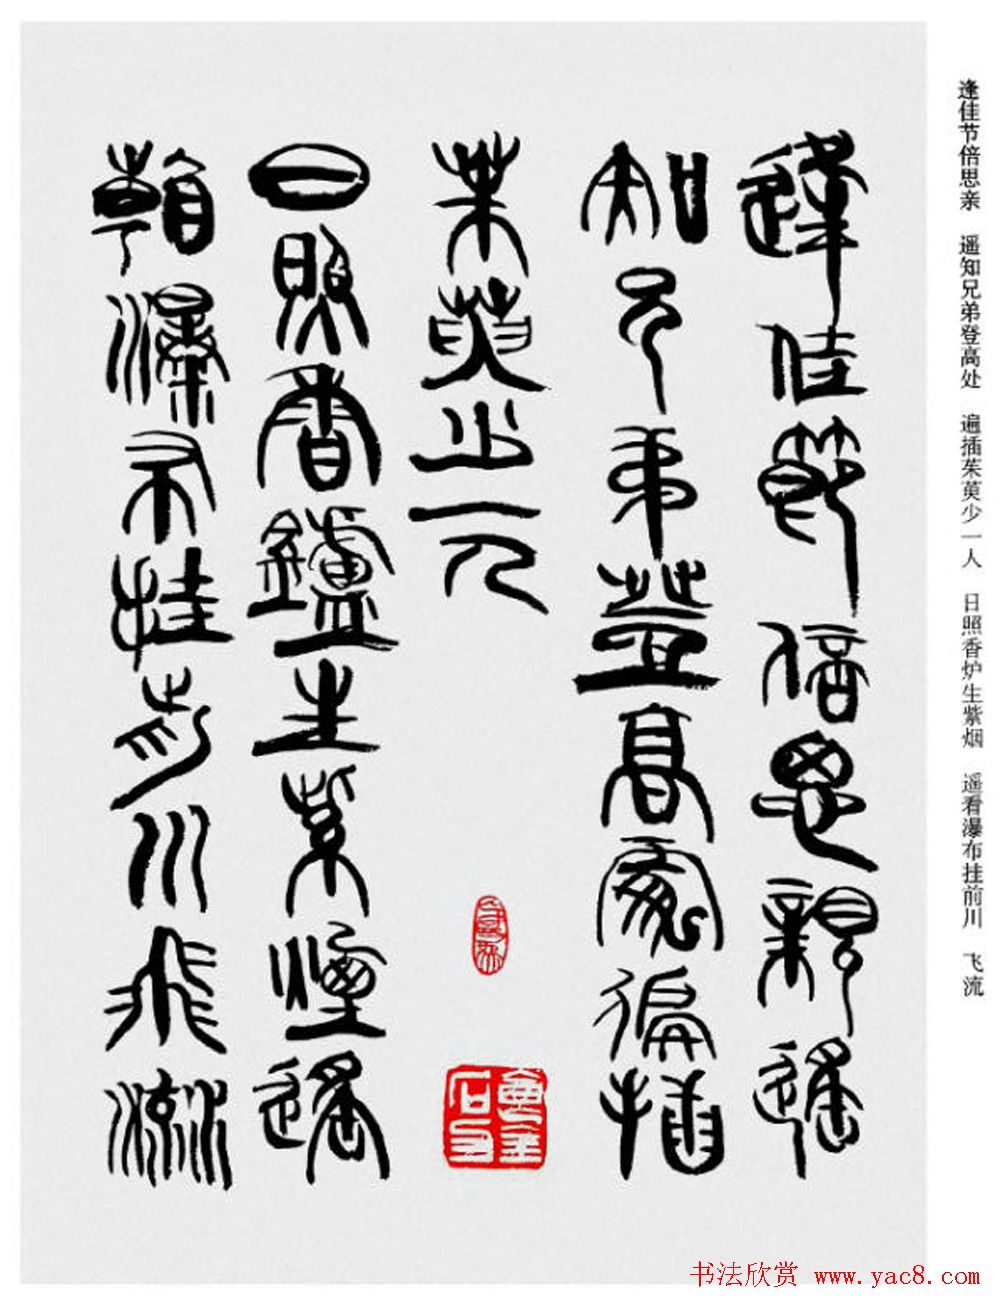 逢佳节倍思亲　遥知兄弟登高处　遍插茱萸少一人　日照香炉生紫烟　遥看瀑布挂前川　飞流
逢佳節倍思親遙
知兄弟登高處徧插
茱萸少一人
日照香鑪生紫煙遙
看瀑布挂前川飛流
书法欣赏 www.yac8.com